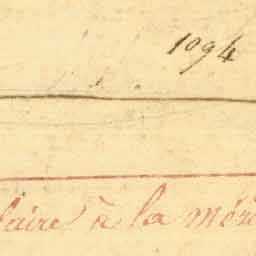 1094
laire à la méri